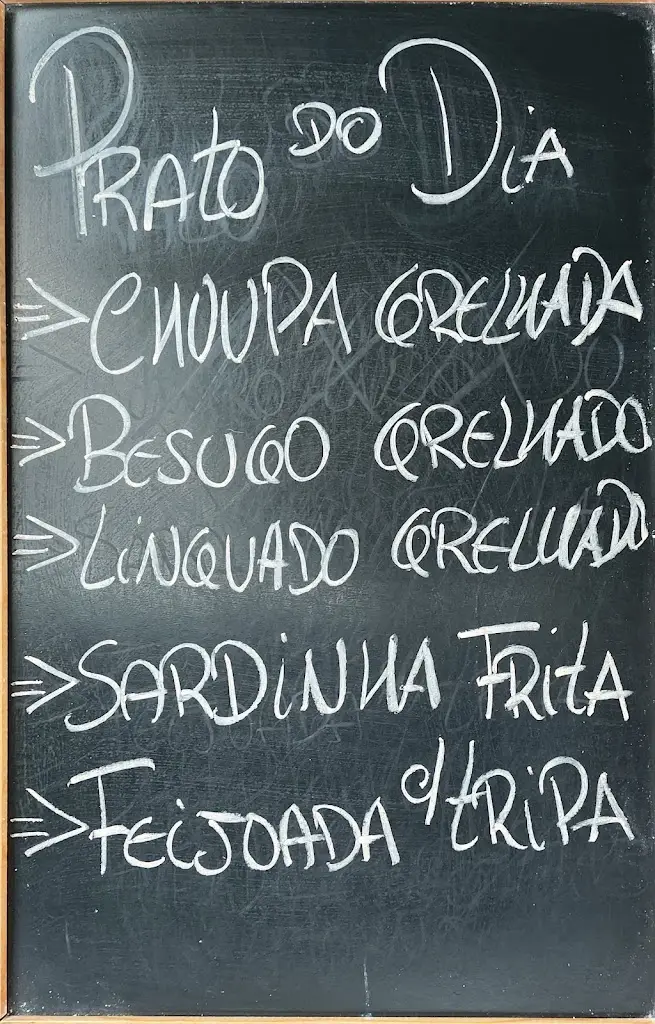 PRATO DO DIA
=> CHOUPA GRELHADA
=> BESUGO GRELHADO
=> LINGUADO GRELHADO
=> SARDINHA FRITA
=> FEIJOADA c/ TRIPA